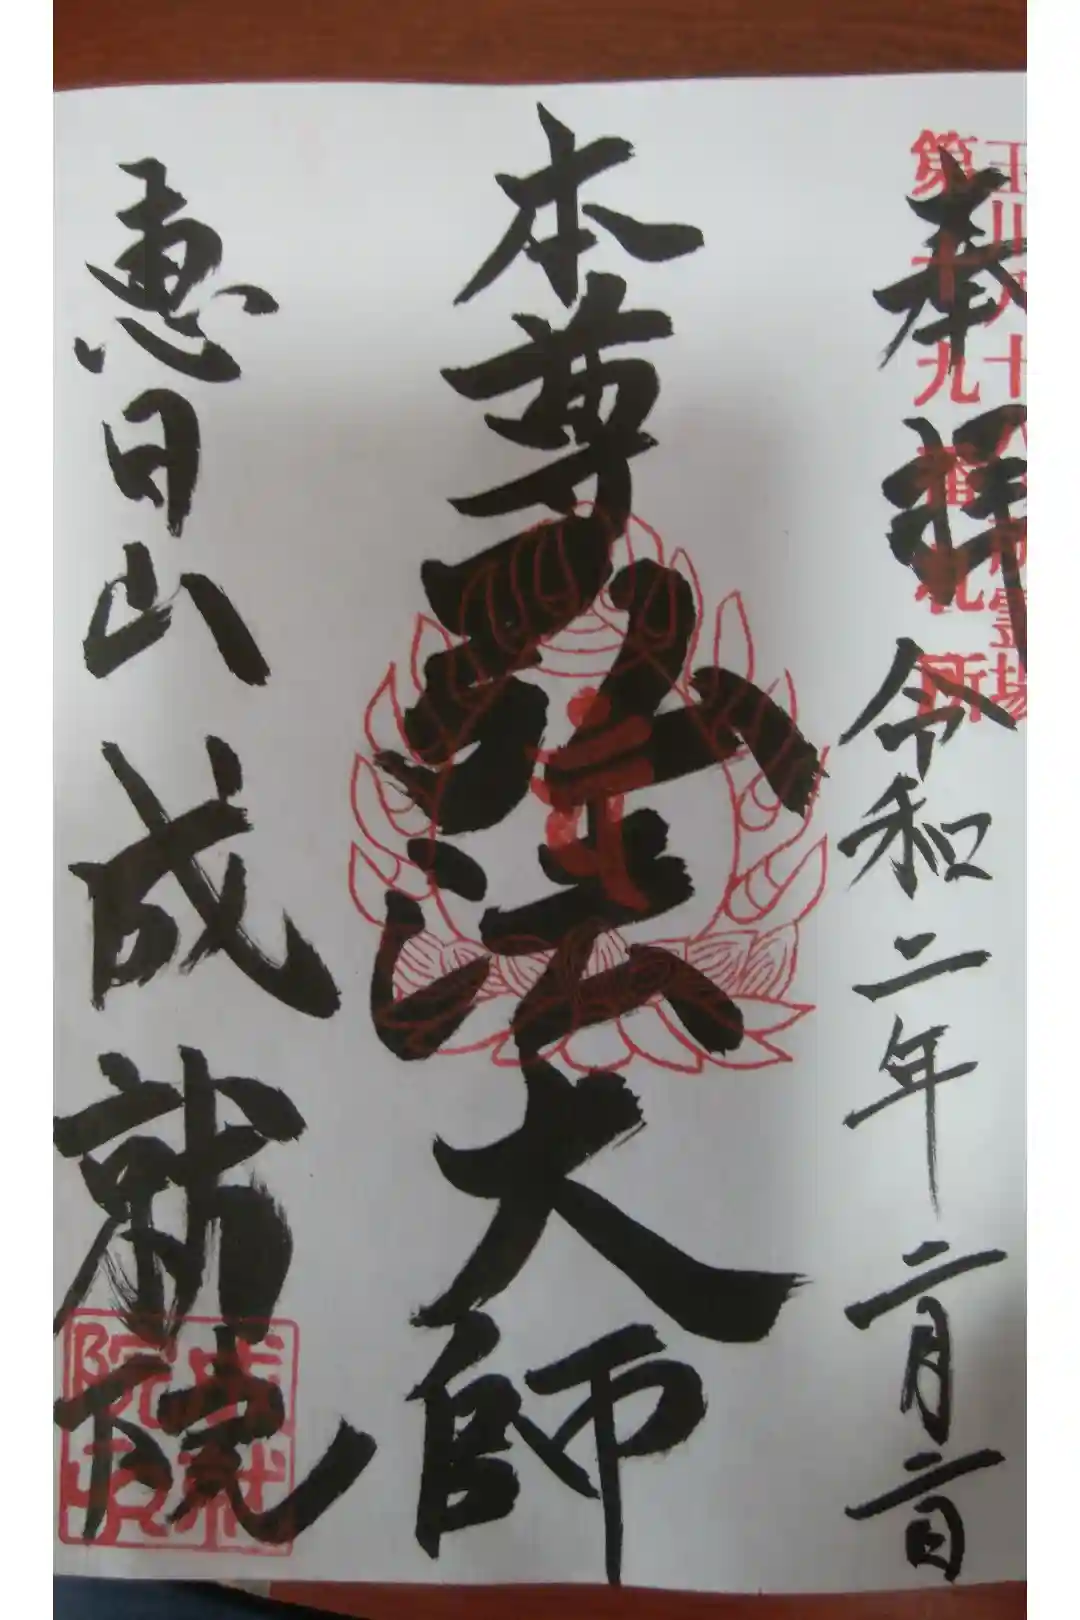 玉川八十八ヶ所霊場
第十九番札所
奉拝 令和二年二月二日
本尊弘法大師
恵日山 成就院
成就院